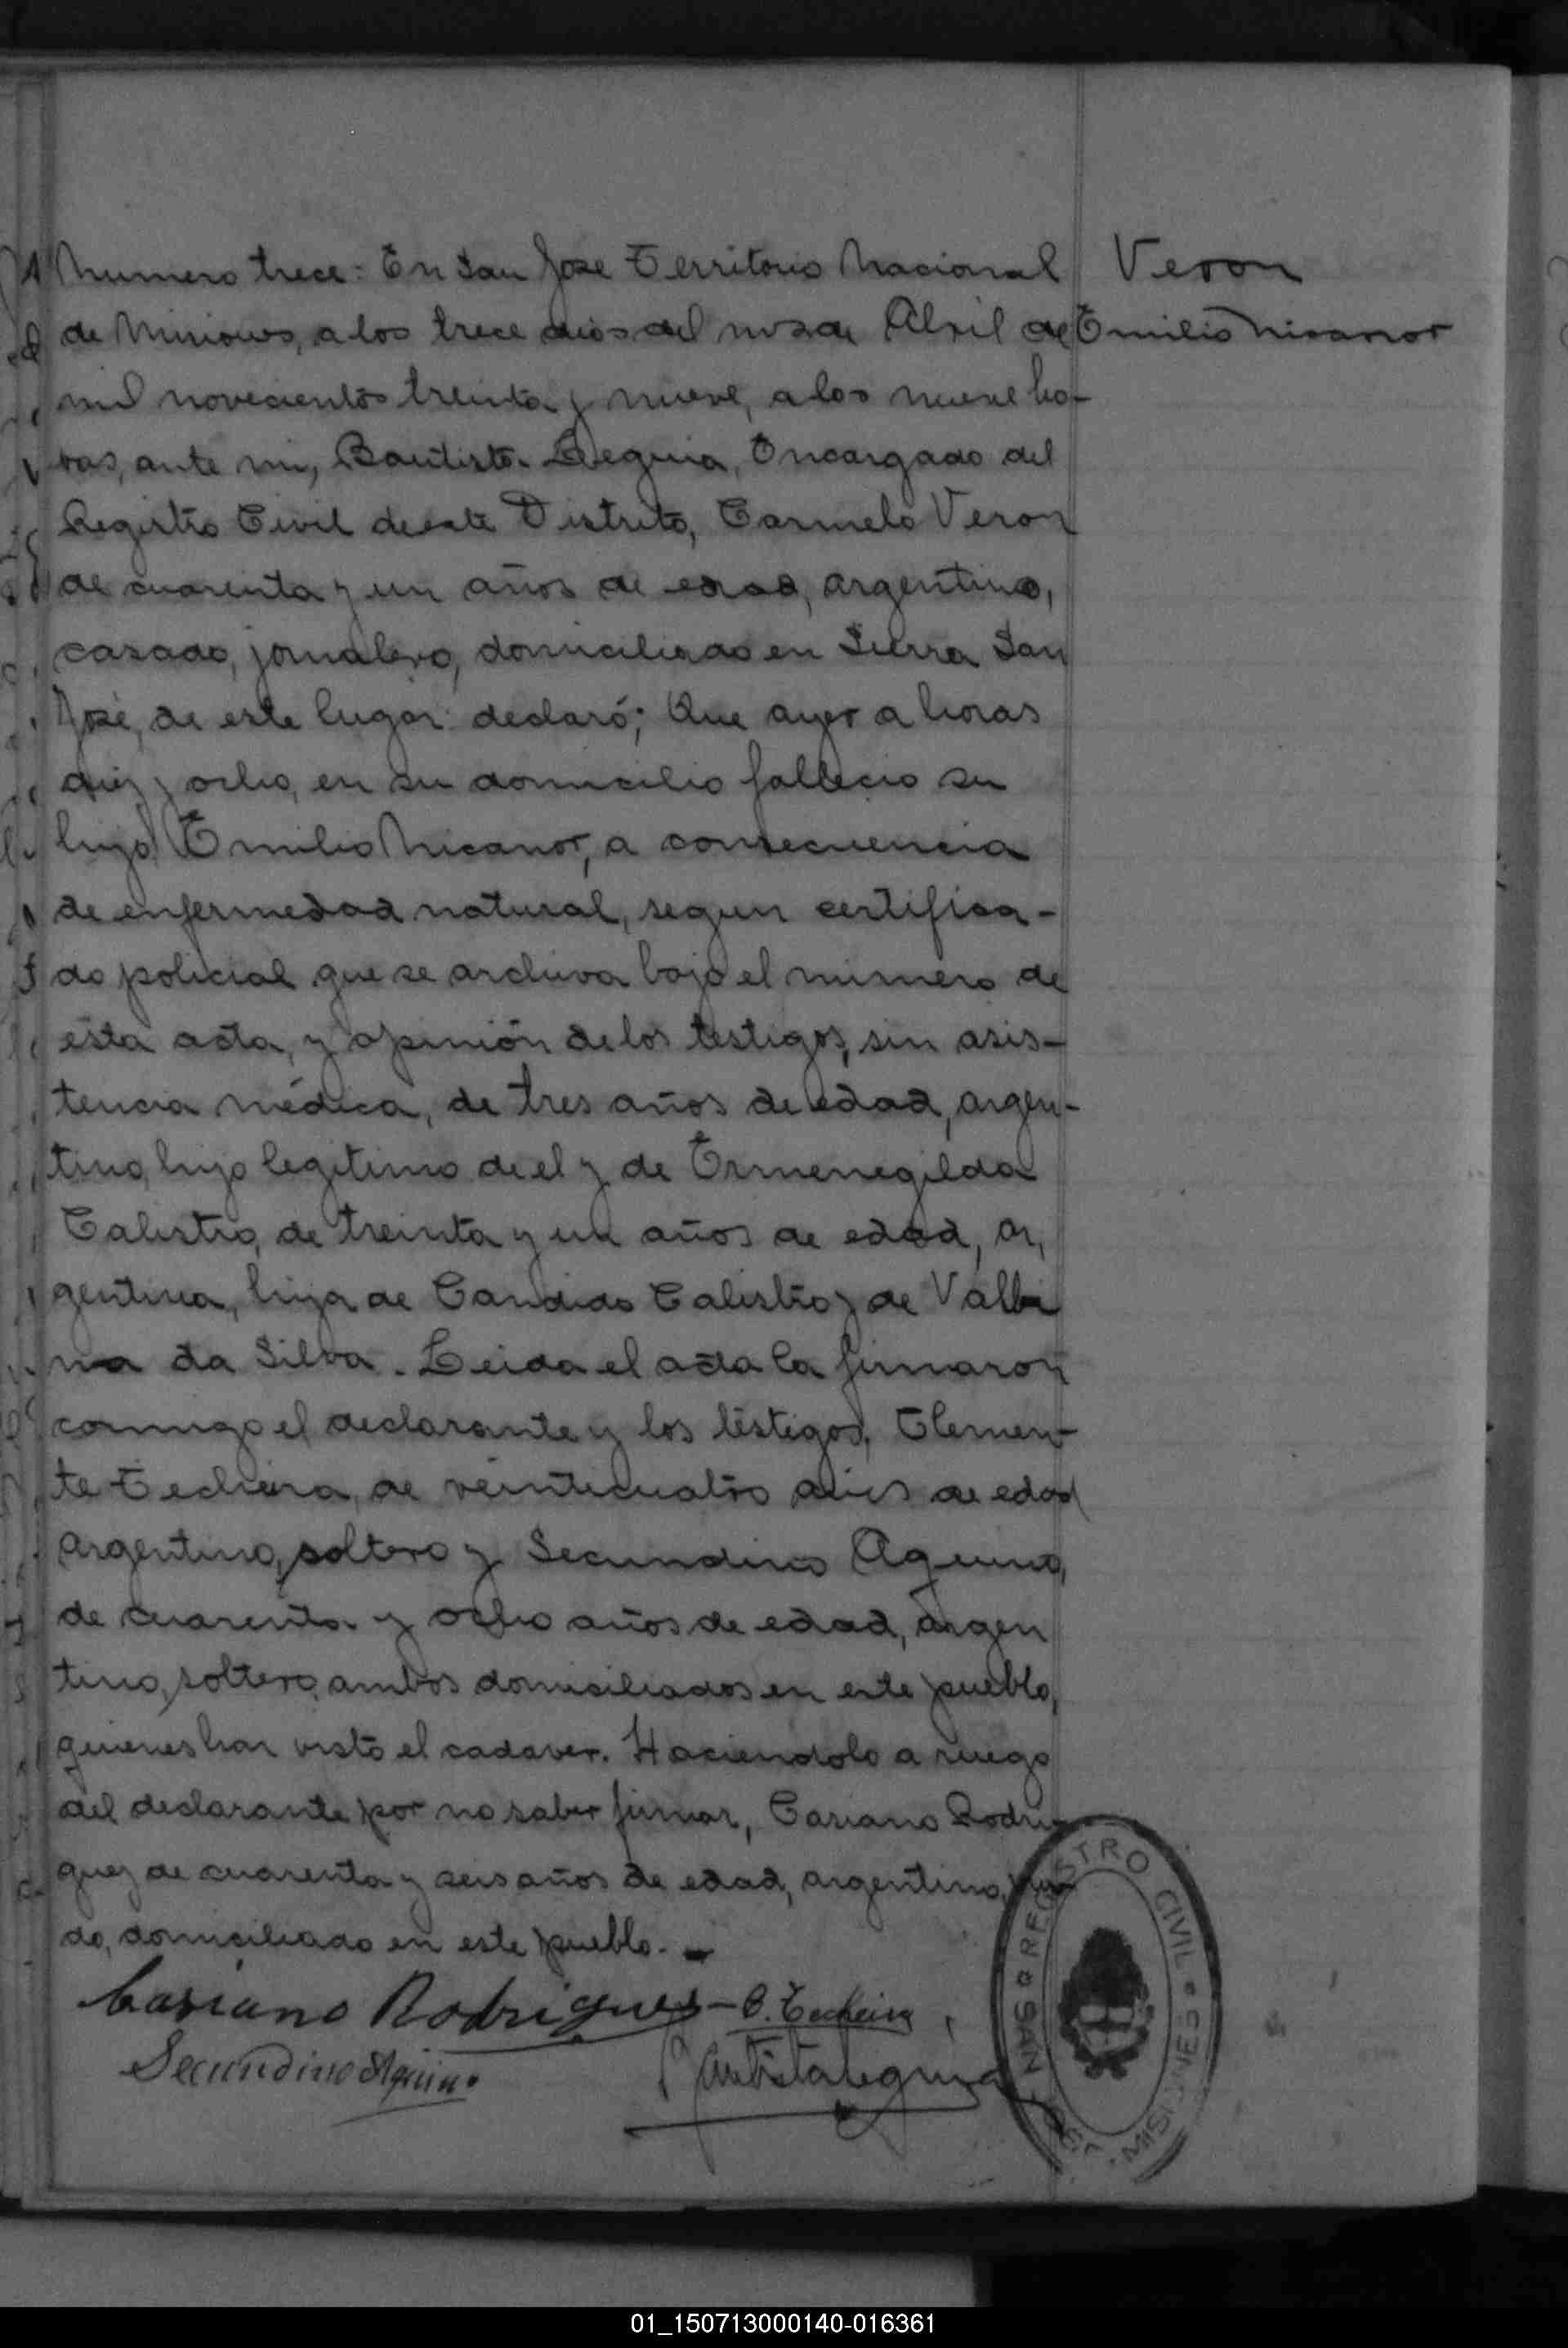 Numero trece: En San José Territorio Nacional
de Misiones, a los trece dias del mes de Abril de
mil novecientos treinta y nueve, a las nueve ho-
ras, ante mi, Bautista Leguia, Encargado del
Registro Civil de este Distrito, Carmelo Veron
de cuarenta y un años de edad, argentino,
casado, jornalero, domiciliado en Sierra San
José, de este lugar declaró; Que ayer a horas
diez y ocho, en su domicilio fallecio su
hijo Emilio Nicanor, a consecuencia
de enfermedad natural, segun certifica-
do policial que se archiva bajo el numero de
esta acta, y opinión de los testigos, sin asis-
tencia médica, de tres años de edad, argen-
tino, hijo legitimo de el y de Ermenegilda
Calistro, de treinta y un años de edad, ar,
gentina, hija de Candido Calistro y de Valbi
na da Silva. Leida el acta la firmaron
conmigo el declarante y los testigos, Clemen-
te Techeira, de veinticuatro años de edad
argentino, soltero y Secundino Aquino,
de cuarenta y ocho años de edad, argen
tino, soltero, ambos domiciliados en este pueblo,
quienes han visto el cadaver. Haciendolo a ruego
del declarante por no saber firmar, Casiano Rodri-
guez de cuarenta y seis años de edad, argentino,
do, domiciliado en este pueblo. -
Casiano Rodrigues - C. Techeira
Secundino Aquino
Bautista Leguia
Veron
Emilio Nicanor
REGISTRO CIVIL
SAN JOSE - MISIONES
01_150713000140-016361